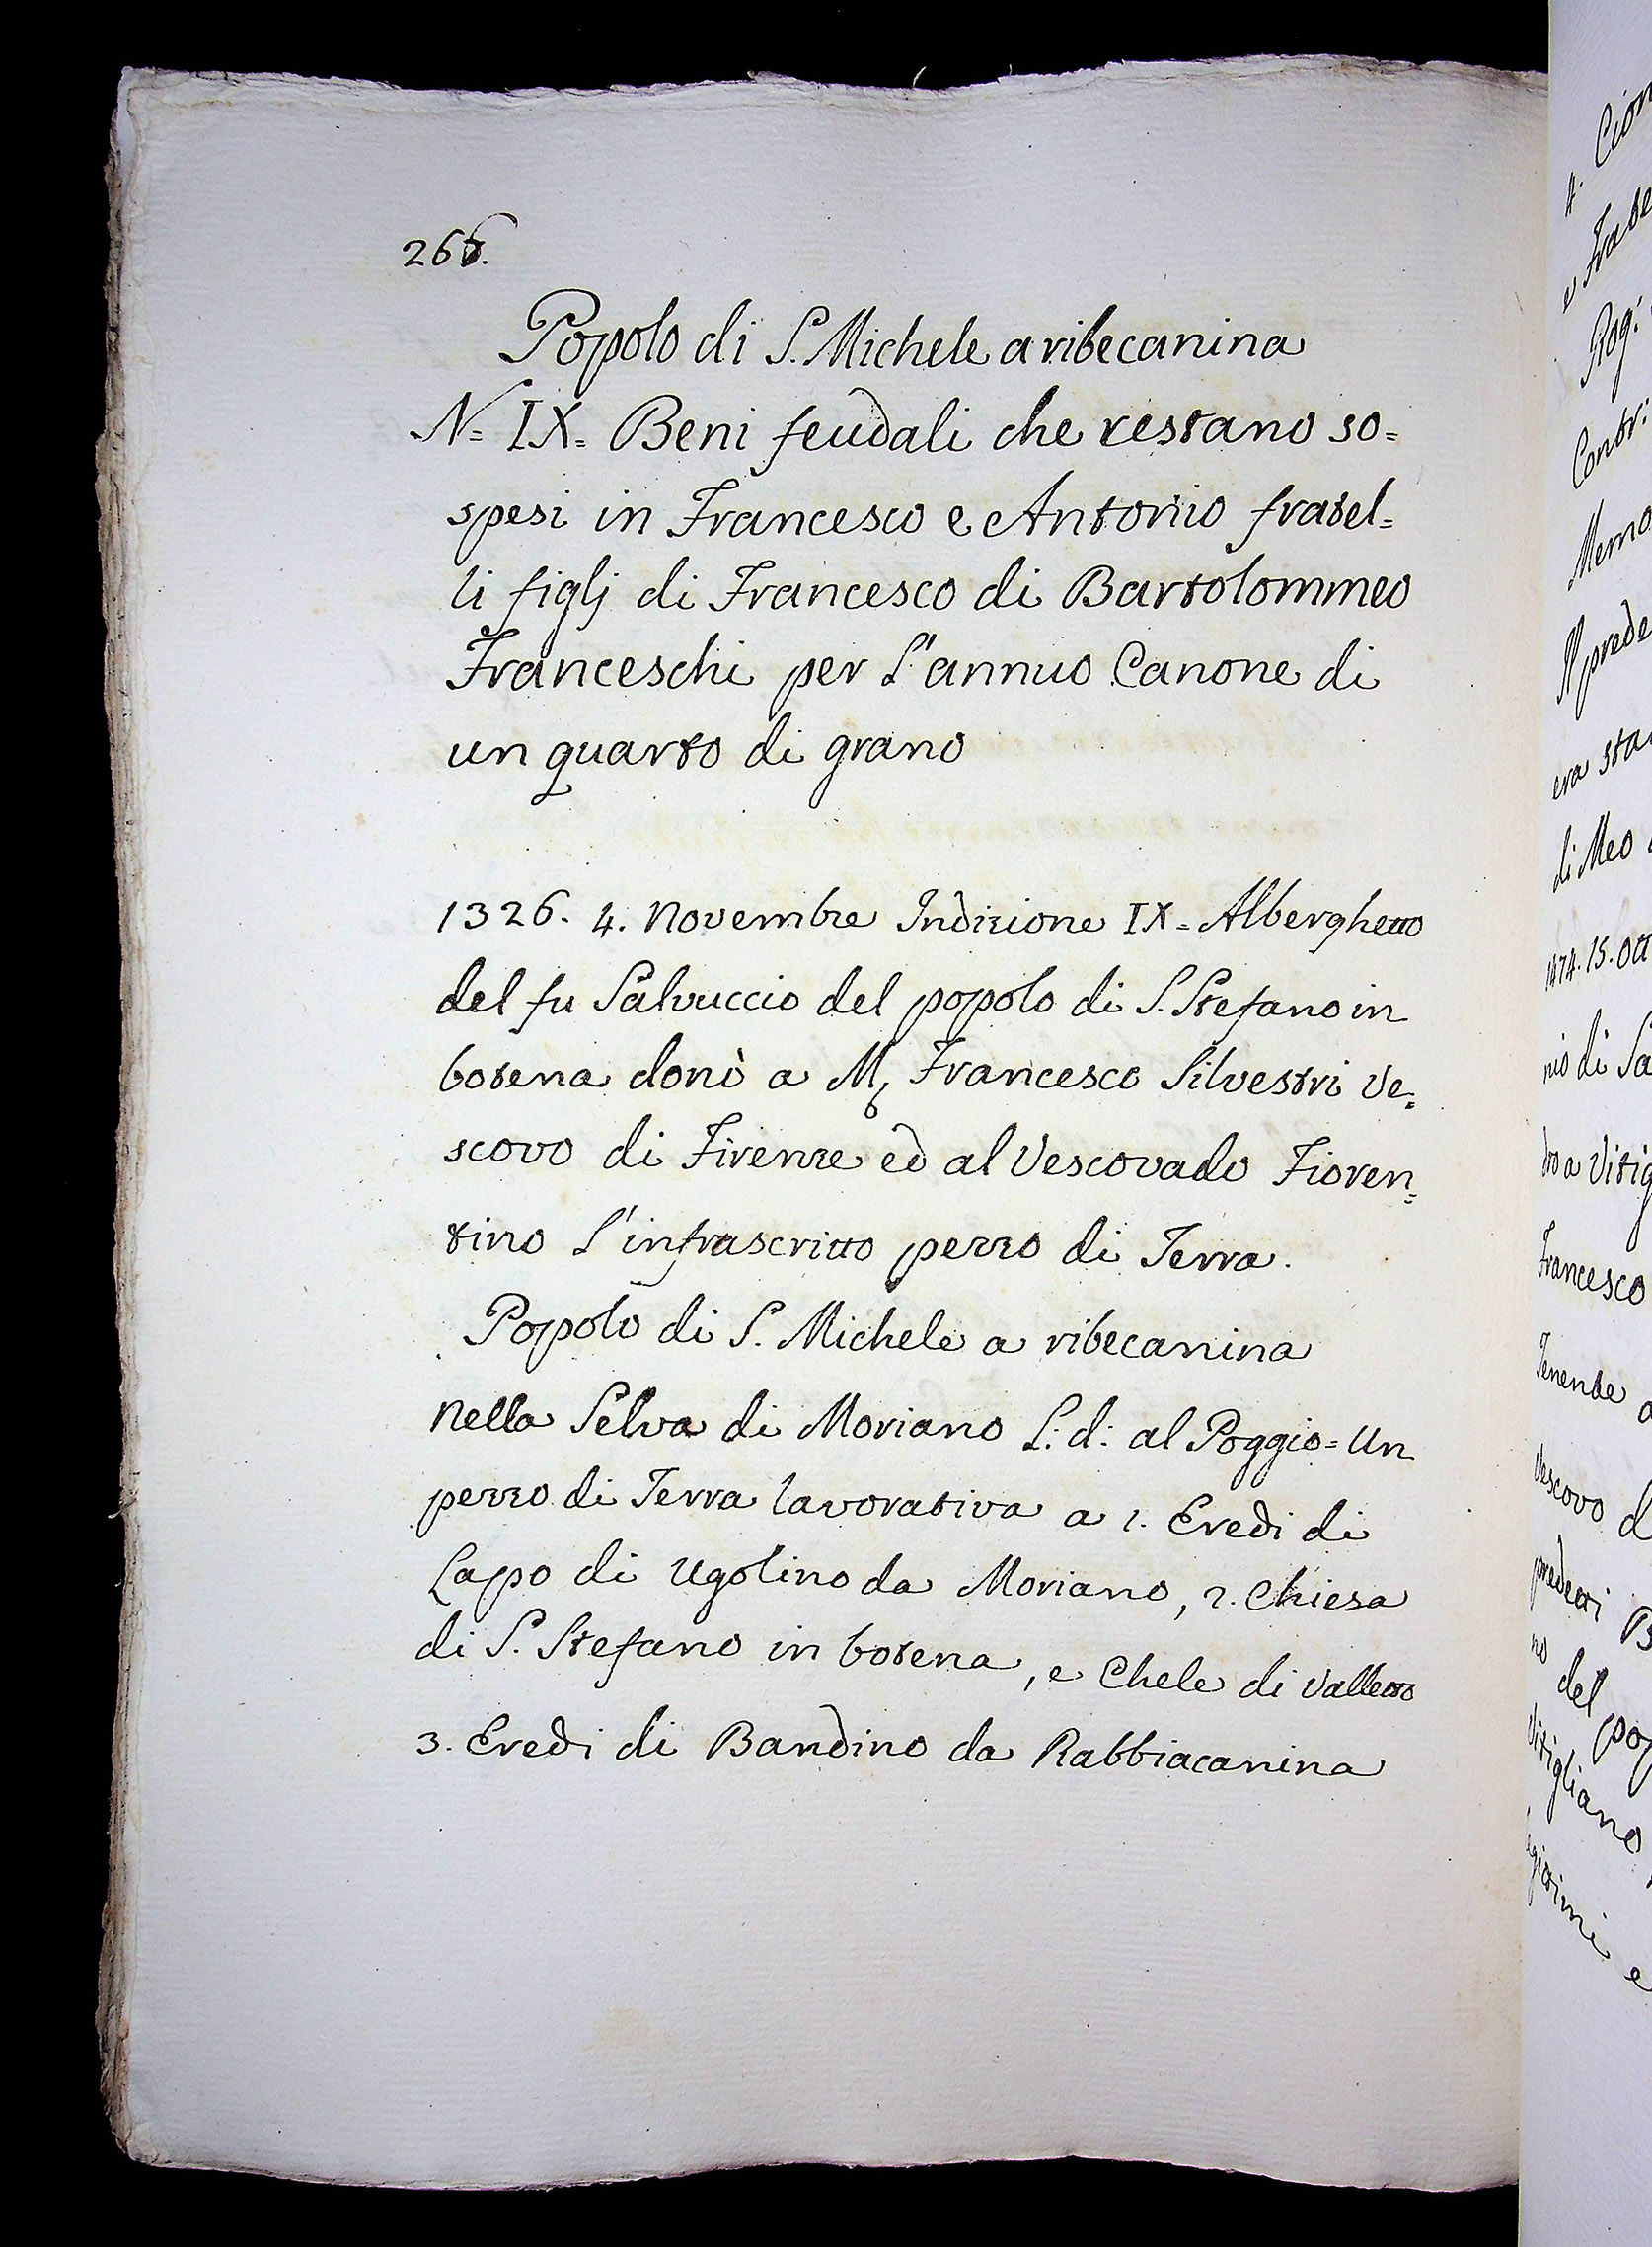 266.
Popolo di S. Michele a ribecanina
N= IX= Beni feudali che restano so=
spesi in Francesco e Antonio fratel=
li figlj di Francesco di Bartolommeo
Franceschi per l'annuo Canone di
un quarto di grano
1326. 4. Novembre Indizione IX= Alberghetto
del fu Salvuccio del popolo di S. Stefano in
botena donò a M, Francesco Silvestri Ve=
scovo di Firenze ed al Vescovado Fioren=
tino l'infrascritto pezzo di Terra.
Popolo di S. Michele a ribecanina
nella Selva di Moriano l: d: al Poggio= Un
pezzo di Terra lavorativa a 1. Eredi di
Lapo di Ugolino da Moriano, 2. Chiesa
di S. Stefano in botena, e Chele di Valletto
3. Eredi di Bandino da Rabbiacanina
4.
e
Rog:
Contr:
Il prede
era sta
di Meo
1474. 15. Ott
nio di Sa
Francesco
Tenente
Vescovo d
predetti B
no del pop